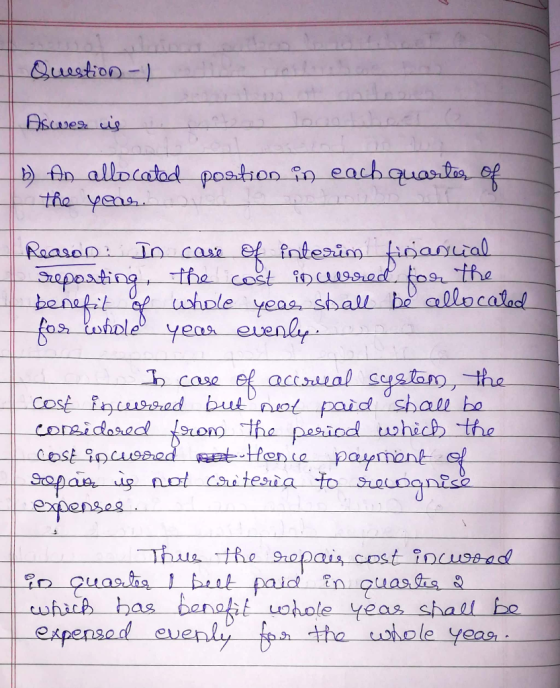 Question - 1
Answer is
b) An allocated portion in each quarter of
the year.
Reason: In case of interim financial
reporting, the cost incurred for the
benefit of whole year shall be allocated
for whole year evenly.
In case of accrual system, the
cost incurred but not paid shall be
considered from the period which the
cost incurred Hence payment of
repair is not criteria to recognise
expenses.
Thus the repair cost incurred
in quarter 1 but paid in quarter 2
which has benefit whole year shall be
expensed evenly for the whole year.